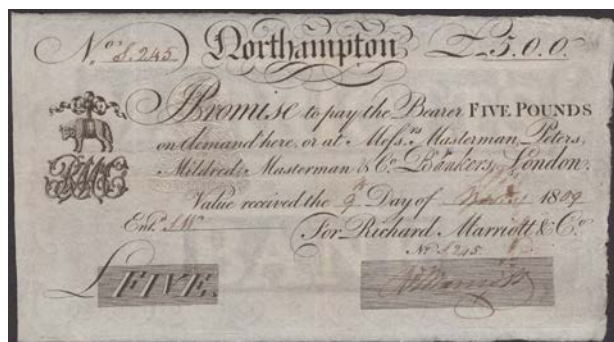 No. S.245 Northampton £5.0.0.
I Promise to pay the Bearer FIVE POUNDS
on demand here, or at Messrs. Masterman, Peters,
Mildred, Masterman & Co. Bankers, London.
Value received the 9 Day of 1809
Entd. For Richard Marriott & Co.
No. S245.
£ FIVE.